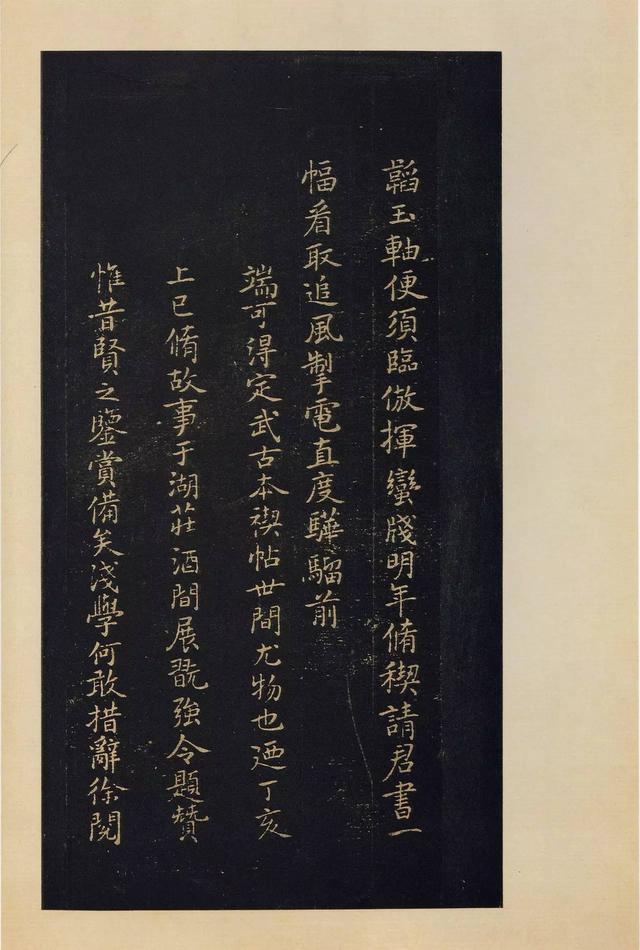 韜玉軸便須臨倣揮蠻牋明年脩稧請君書一
幅看取追風掣電直度驊騮前
端可得定武古本禊帖世間尤物也迺丁亥
上巳脩故事于湖莊酒間展翫強令題贊
惟昔賢之鑒賞備矣淺學何敢措辭徐閱